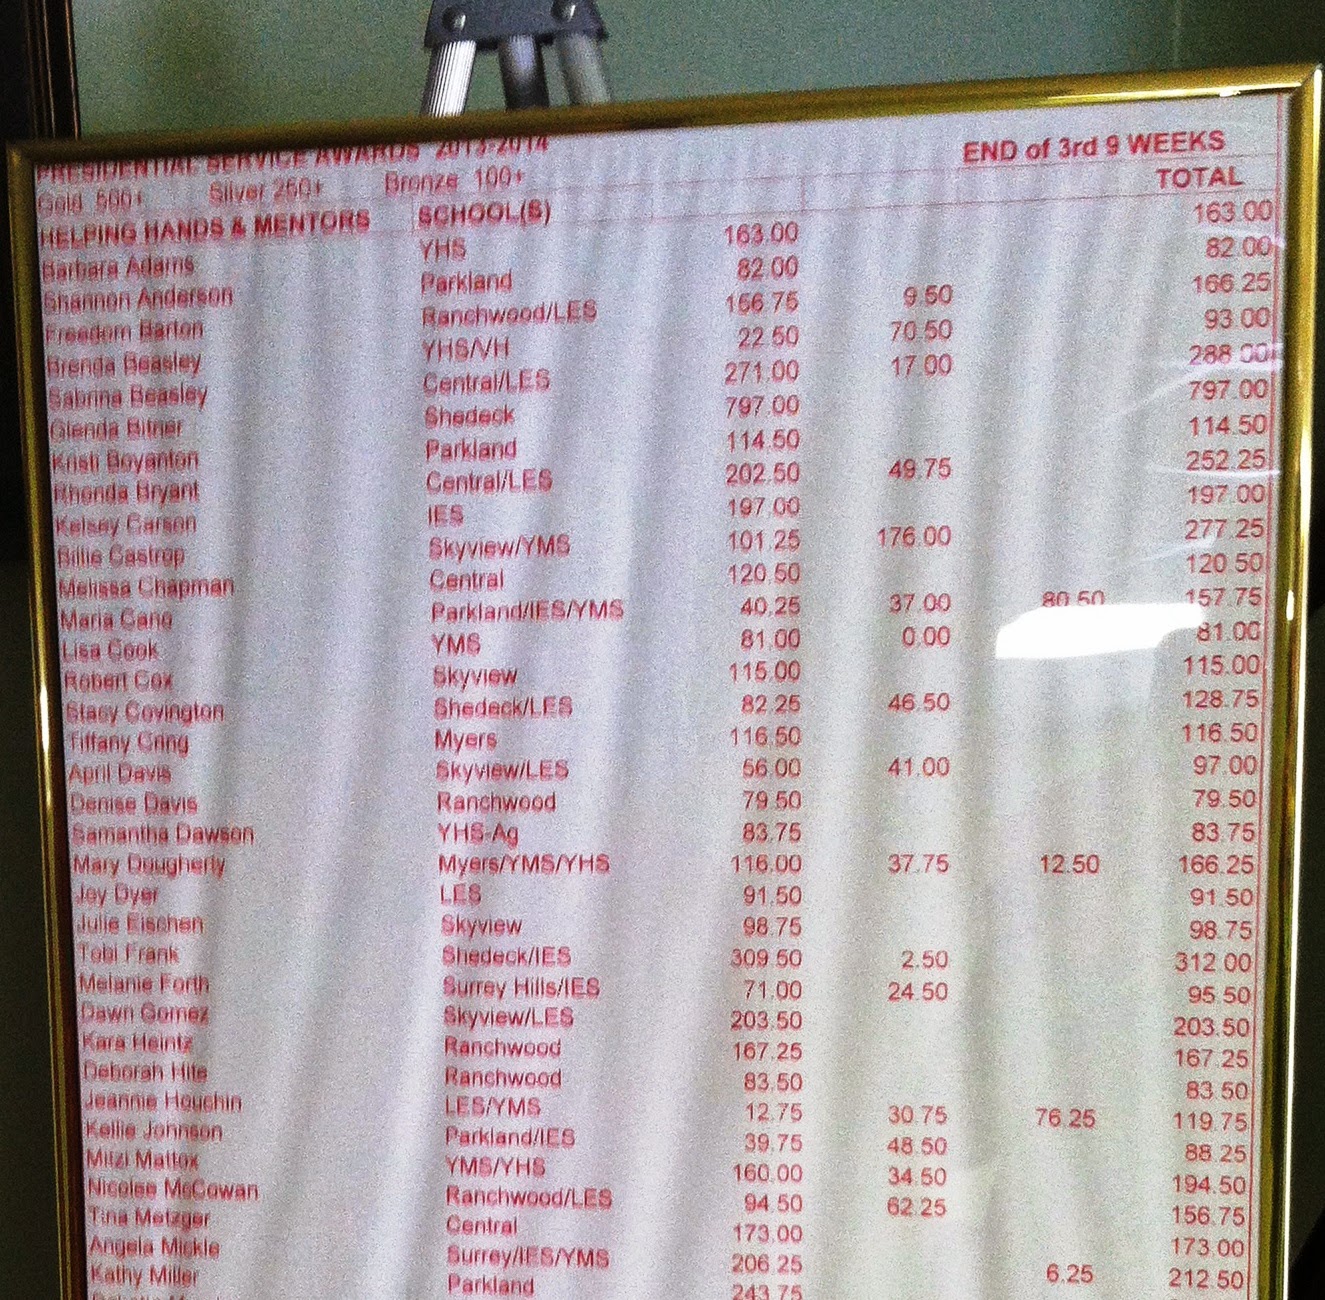 PRESIDENTIAL SERVICE AWARDS 2013-2014 END of 3rd 9 WEEKS
Gold 500+ Silver 250+ Bronze 100+
HELPING HANDS & MENTORS SCHOOL(S) TOTAL
Barbara Adams YHS 163.00 163.00
Shannon Anderson Parkland 82.00 82.00
Freedom Barton Ranchwood/LES 156.75 9.50 166.25
Brenda Beasley YHS/VH 22.50 70.50 93.00
Sabrina Beasley Central/LES 271.00 17.00 288.00
Glenda Bitner Shedeck 797.00 797.00
Kristi Boyanton Parkland 114.50 114.50
Rhonda Bryant Central/LES 202.50 49.75 252.25
Kelsey Carson IES 197.00 197.00
Billie Castrop Skyview/YMS 101.25 176.00 277.25
Melissa Chapman Central 120.50 120.50
Maria Parkland/IES/YMS 40.25 37.00 80.50 157.75
Lisa Cook YMS 81.00 0.00 81.00
Robert Cox Skyview 115.00 115.00
Stacy Covington Shedeck/LES 82.25 46.50 128.75
Tiffany Cring Myers 116.50 116.50
April Davis Skyview/LES 56.00 41.00 97.00
Denise Davis Ranchwood 79.50 79.50
Samantha Dawson YHS-Ag 83.75 83.75
Mary Dougherty Myers/YMS/YHS 116.00 37.75 12.50 166.25
Joy Dyer LES 91.50 91.50
Julie Eischen Skyview 98.75 98.75
Tobi Frank Shedeck/IES 309.50 2.50 312.00
Melanie Forth Surrey Hills/IES 71.00 24.50 95.50
Dawn Gomez Skyview/LES 203.50 203.50
Kara Heintz Ranchwood 167.25 167.25
Deborah Hite Ranchwood 83.50 83.50
Jeannie Houchin LES/YMS 12.75 30.75 76.25 119.75
Kellie Johnson Parkland/IES 39.75 48.50 88.25
Mitzi Mattox YMS/YHS 160.00 34.50 194.50
Nicolee McCowan Ranchwood/LES 94.50 62.25 156.75
Tina Metzger Central 173.00 173.00
Angela Mickle Surrey/IES/YMS 206.25 6.25 212.50
Kathy Miller Parkland 243.75